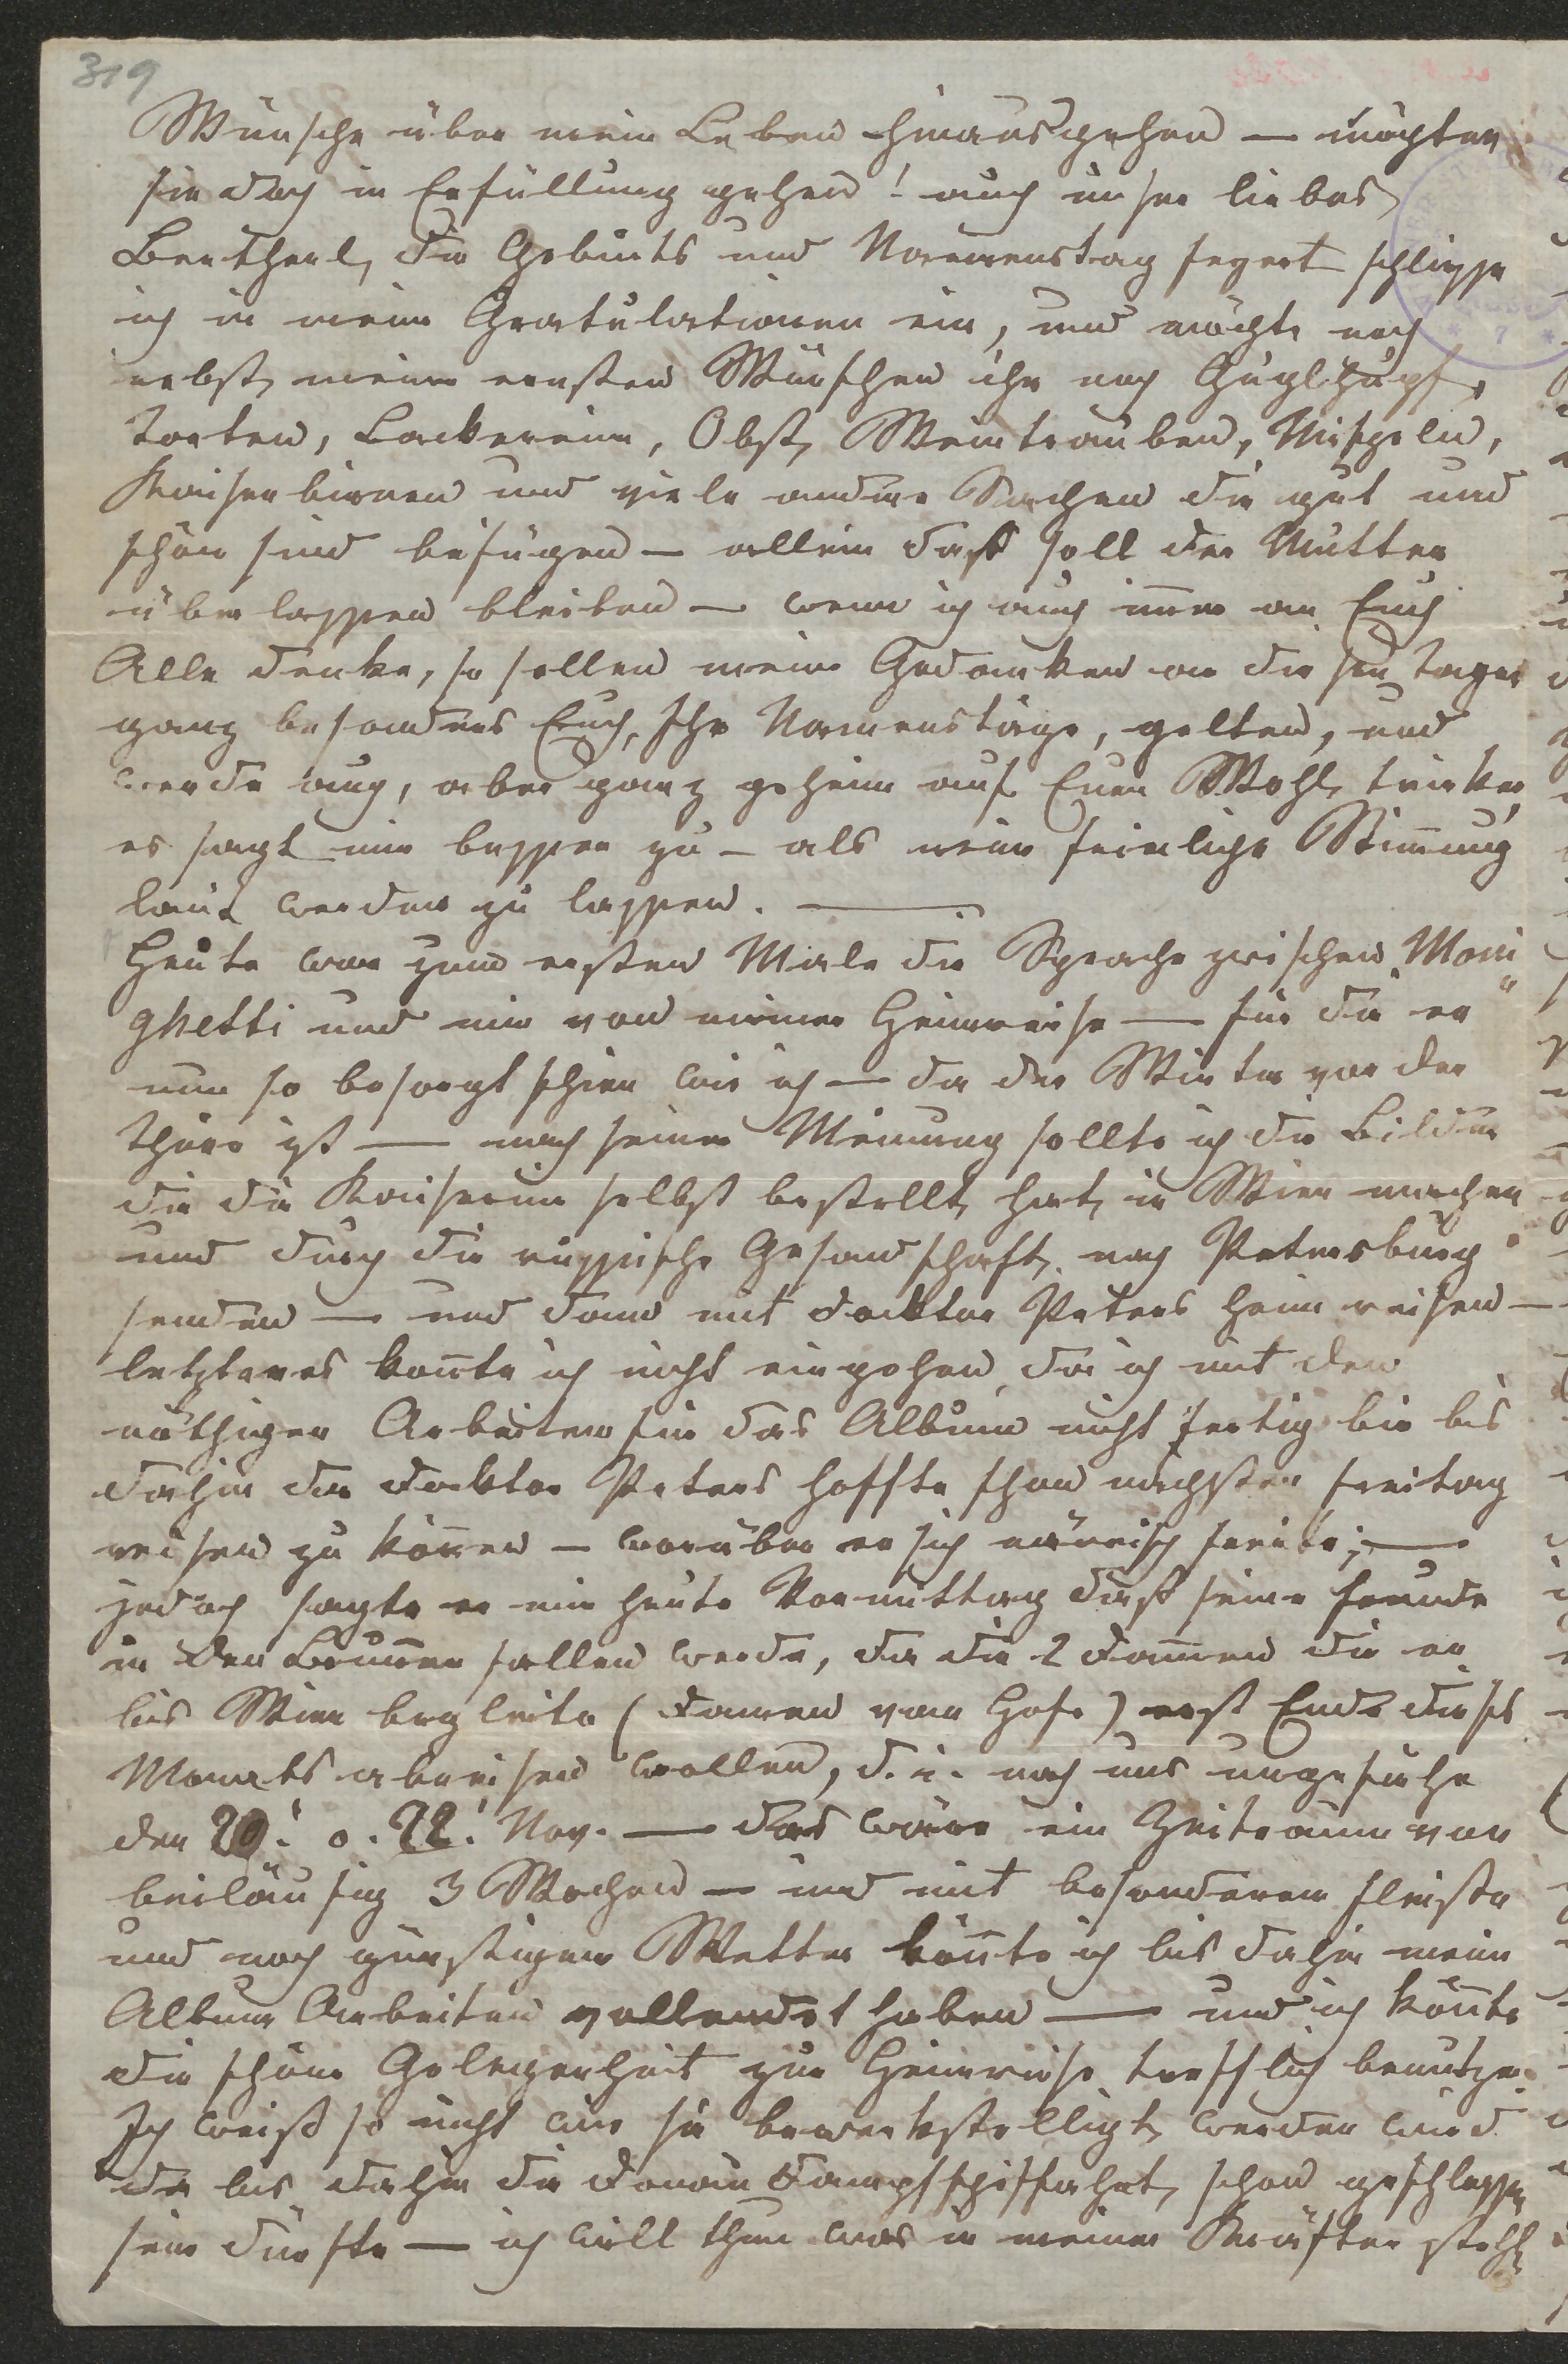 319
Wünsche über mein Leben hinausgehen — möchten
sie doch in Erfüllung gehen! auch unser liebes
Bertherl, die Geburts und Namenstag feyert schließe
ich in meine Gratulationen ein, und möchte noch
nebst meinen ernsten Wünschen ihr noch Guglhupf,
Torten, Backereien, Obst, Weintrauben, Mispeln,
Kaiserbirnen und viele andere Sachen die gut und
schön sind beifügen — allein daß soll der Mutter
überlassen bleiben — wenn ich auch im̅er an Euch
Alle denke, so sollen meine Gedanken an diesen Tagen
ganz besonders Euch, Ihr Namenstäge, gelten, und
werde auch, aber ganz geheim auf Euer Wohl trinken,
es sagt mir besser zu — als meine feierliche Stim̅ung
laut werden zu lassen. —
Heute war zum ersten Male die Sprache zwischen „Moni
ghetti“ und mir von meiner Heimreise — für die er
nun so besorgt schien wie ich — da der Winter vor der
Thüre ist — nach seiner Meinung sollte ich die Bilder
die die Kaiserinn selbst bestellt hat, in Wien machen
und durch die russische Gesandschaft nach Petersburg
senden — und dann mit Docktor Peters heim reisen —
letzteres kon̅te ich nicht eingehen, da ich mit den
nöthigen Arbeiten für das Album nicht fertig bin bis
dahin der Docktor Peters hoffte schon nächsten Freitag
reisen zu kön̅en — worüber er sich närrisch freute; —
jedoch sagte er mir heute Vormittag daß seine Freude
in den Brun̅en fallen werde, da die 2 Dam̅en die er
bis Wien begleite (Damen vom Hofe) erst Ende dieses
Monats abreisen wollen, d. i. nach uns ungefähr
den 20! o. 22! Nov. — das wäre ein Zeitraum von
beiläufig 3 Wochen — und mit besonderem Fleiße
und noch günstigem Wetter kön̅te ich bis dahin meine
Album Arbeiten vollendet haben — und ich kön̅te
die schöne Gelegenheit zur Heimreise trefflich benutzen.
Ich weiß so nicht wie sie bewerkstelligt werden wird
da bis dahin die Donau Dampfschiffahrt, schon geschlossen
sein dürfte — ich will thun was in meinen Kräften steht